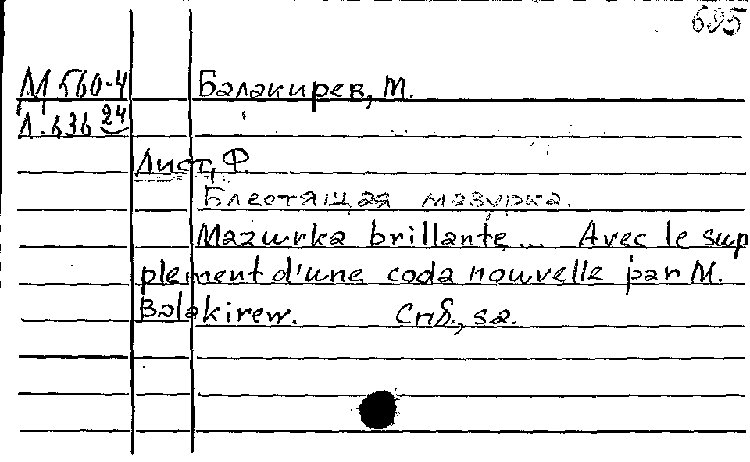 695
М 560-4 Балакирев, М.
Л. 636 24
Лист, Ф.
Блестящая мазурка.
Mazurka brillante... Avec le sup
plement d'une coda nouvelle par M.
Balakirew. Спб., s.a.